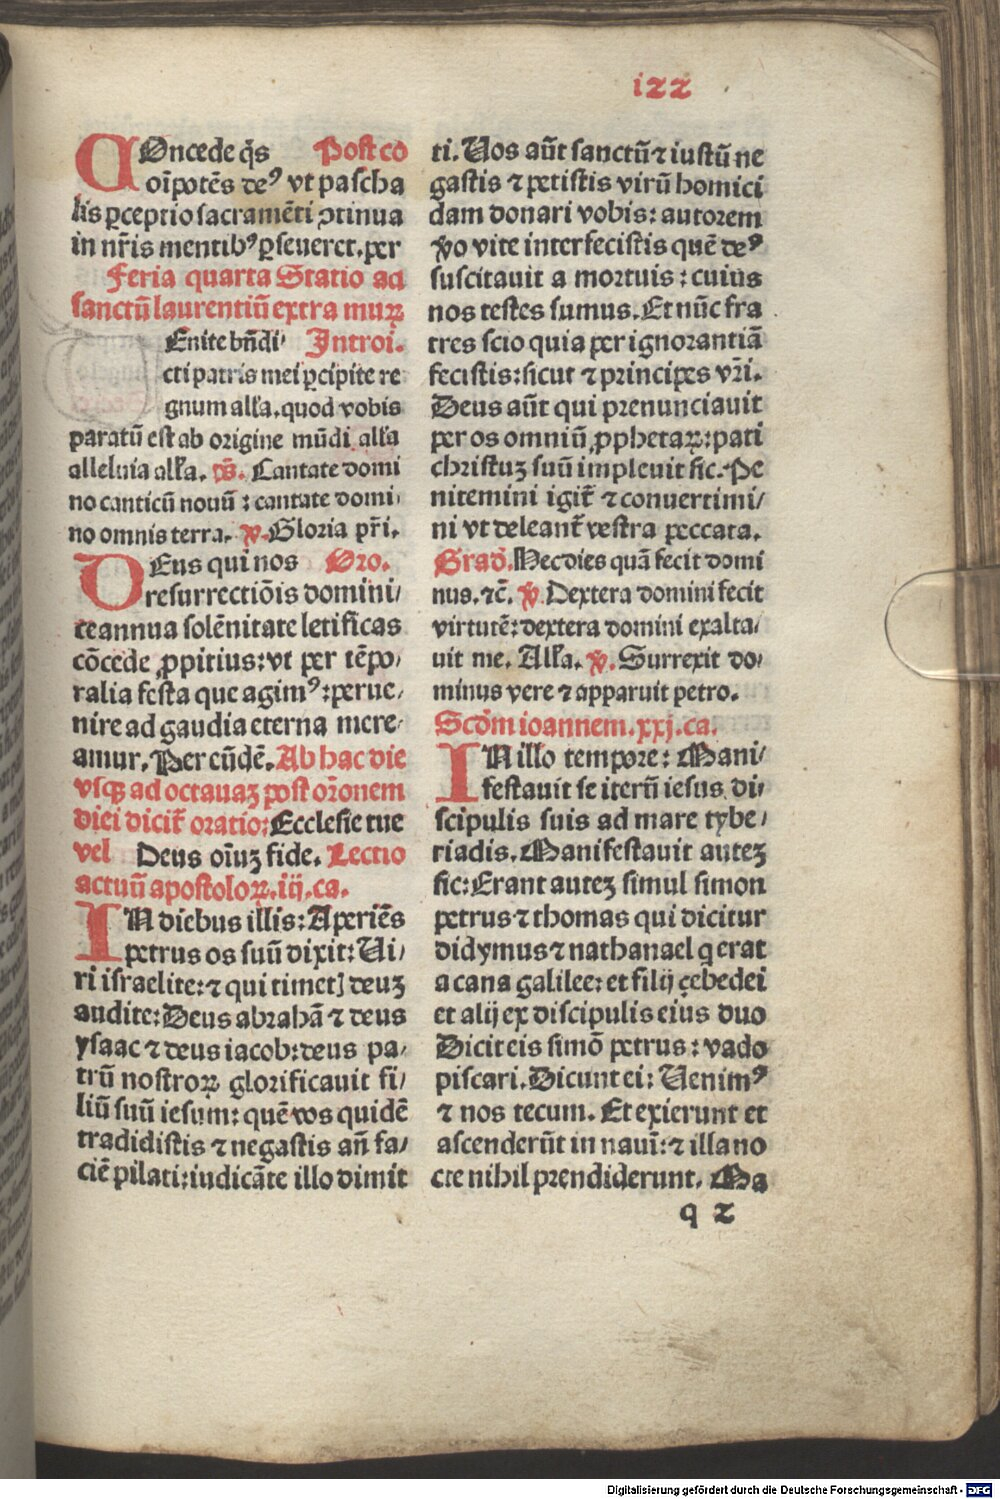 122
COncede q̃s Post cō
oīpotēs deꝰ vt pascha
lis ꝑceptio sacramēti ꝯtinua
in nr̄is mentibꝰ ꝑseueret. per
Feria quarta Statio ad
sanctū laurentiū extra murꝝ
Enite bn̄di Introi.
cti patris mei ꝑcipite re
gnum all'a. quod vobis
paratū est ab origine mūdi all'a
alleluia all'a. ps̄. Cantate domi
no canticū nouū : cantate domi/
no omnis terra. ℣. Gloria pr̄i.
DEus qui nos Oro.
resurrectiōis domini/
ce annua solēnitate letificas
cōcede ꝓpitius: vt per tēpo/
ralia festa que agimꝰ: perue/
nire ad gaudia eterna mere/
amur. Per eūdē. Ab hac die
vsqꝫ ad octauaꝫ post or̄onem
diei dicit̄ oratio: Ecclesie tue
vel Deus oīuꝫ fide. Lectio
actuū apostoloꝝ. iij. ca.
IN diebus illis: Aperiēs
petrus os suū dixit: Ui/
ri israelite: ⁊ qui timet] deuꝫ
audite: Deus abrahā ⁊ deus
ysaac ⁊ deus iacob: deus pa/
trū nostroꝝ glorificauit fi/
liū suū iesum: quē vos quidē
tradidistis ⁊ negastis an̄ fa/
ciē pilati: iudicāte illo dimit
ti. Uos aūt sanctū ⁊ iustū ne
gastis ⁊ petistis virū homici
dam donari vobis: autorem
ṽo vite interfecistis quē deꝰ
suscitauit a mortuis: cuius
nos testes sumus. Et nūc fra
tres scio quia per ignorantiā
fecistis: sicut ⁊ principes vr̄i.
Deus aūt qui prenunciauit
per os omniū ꝓphetaꝝ: pati
christuꝫ suū impleuit sic. Pe
nitemini igit̄ ⁊ conuertimi/
ni vt deleant̄ vestra peccata.
Grad. Hec dies quā fecit domi
nus. ⁊c̄. ℣. Dextera domini fecit
virtutē: dextera domini exalta/
uit me. All'a. ℣. Surrexit do/
minus vere ⁊ apparuit petro.
Scd̄m ioannem. xxj. ca.
IN illo tempore: Mani/
festauit se iterū iesus di/
scipulis suis ad mare tybe/
riadis. Manifestauit auteꝫ
sic: Erant auteꝫ simul simon
petrus ⁊ thomas qui dicitur
didymus ⁊ nathanael q erat
a cana galilee: et filij çebedei
et alij ex discipulis eius duo
Dicit eis simō petrus: vado
piscari. Dicunt ei: Uenimꝰ
⁊ nos tecum. Et exierunt et
ascenderūt in nauī: ⁊ illa no
cte nihil prendiderunt. Ma
q 2
Digitalisierung gefördert durch die Deutsche Forschungsgemeinschaft - DFG